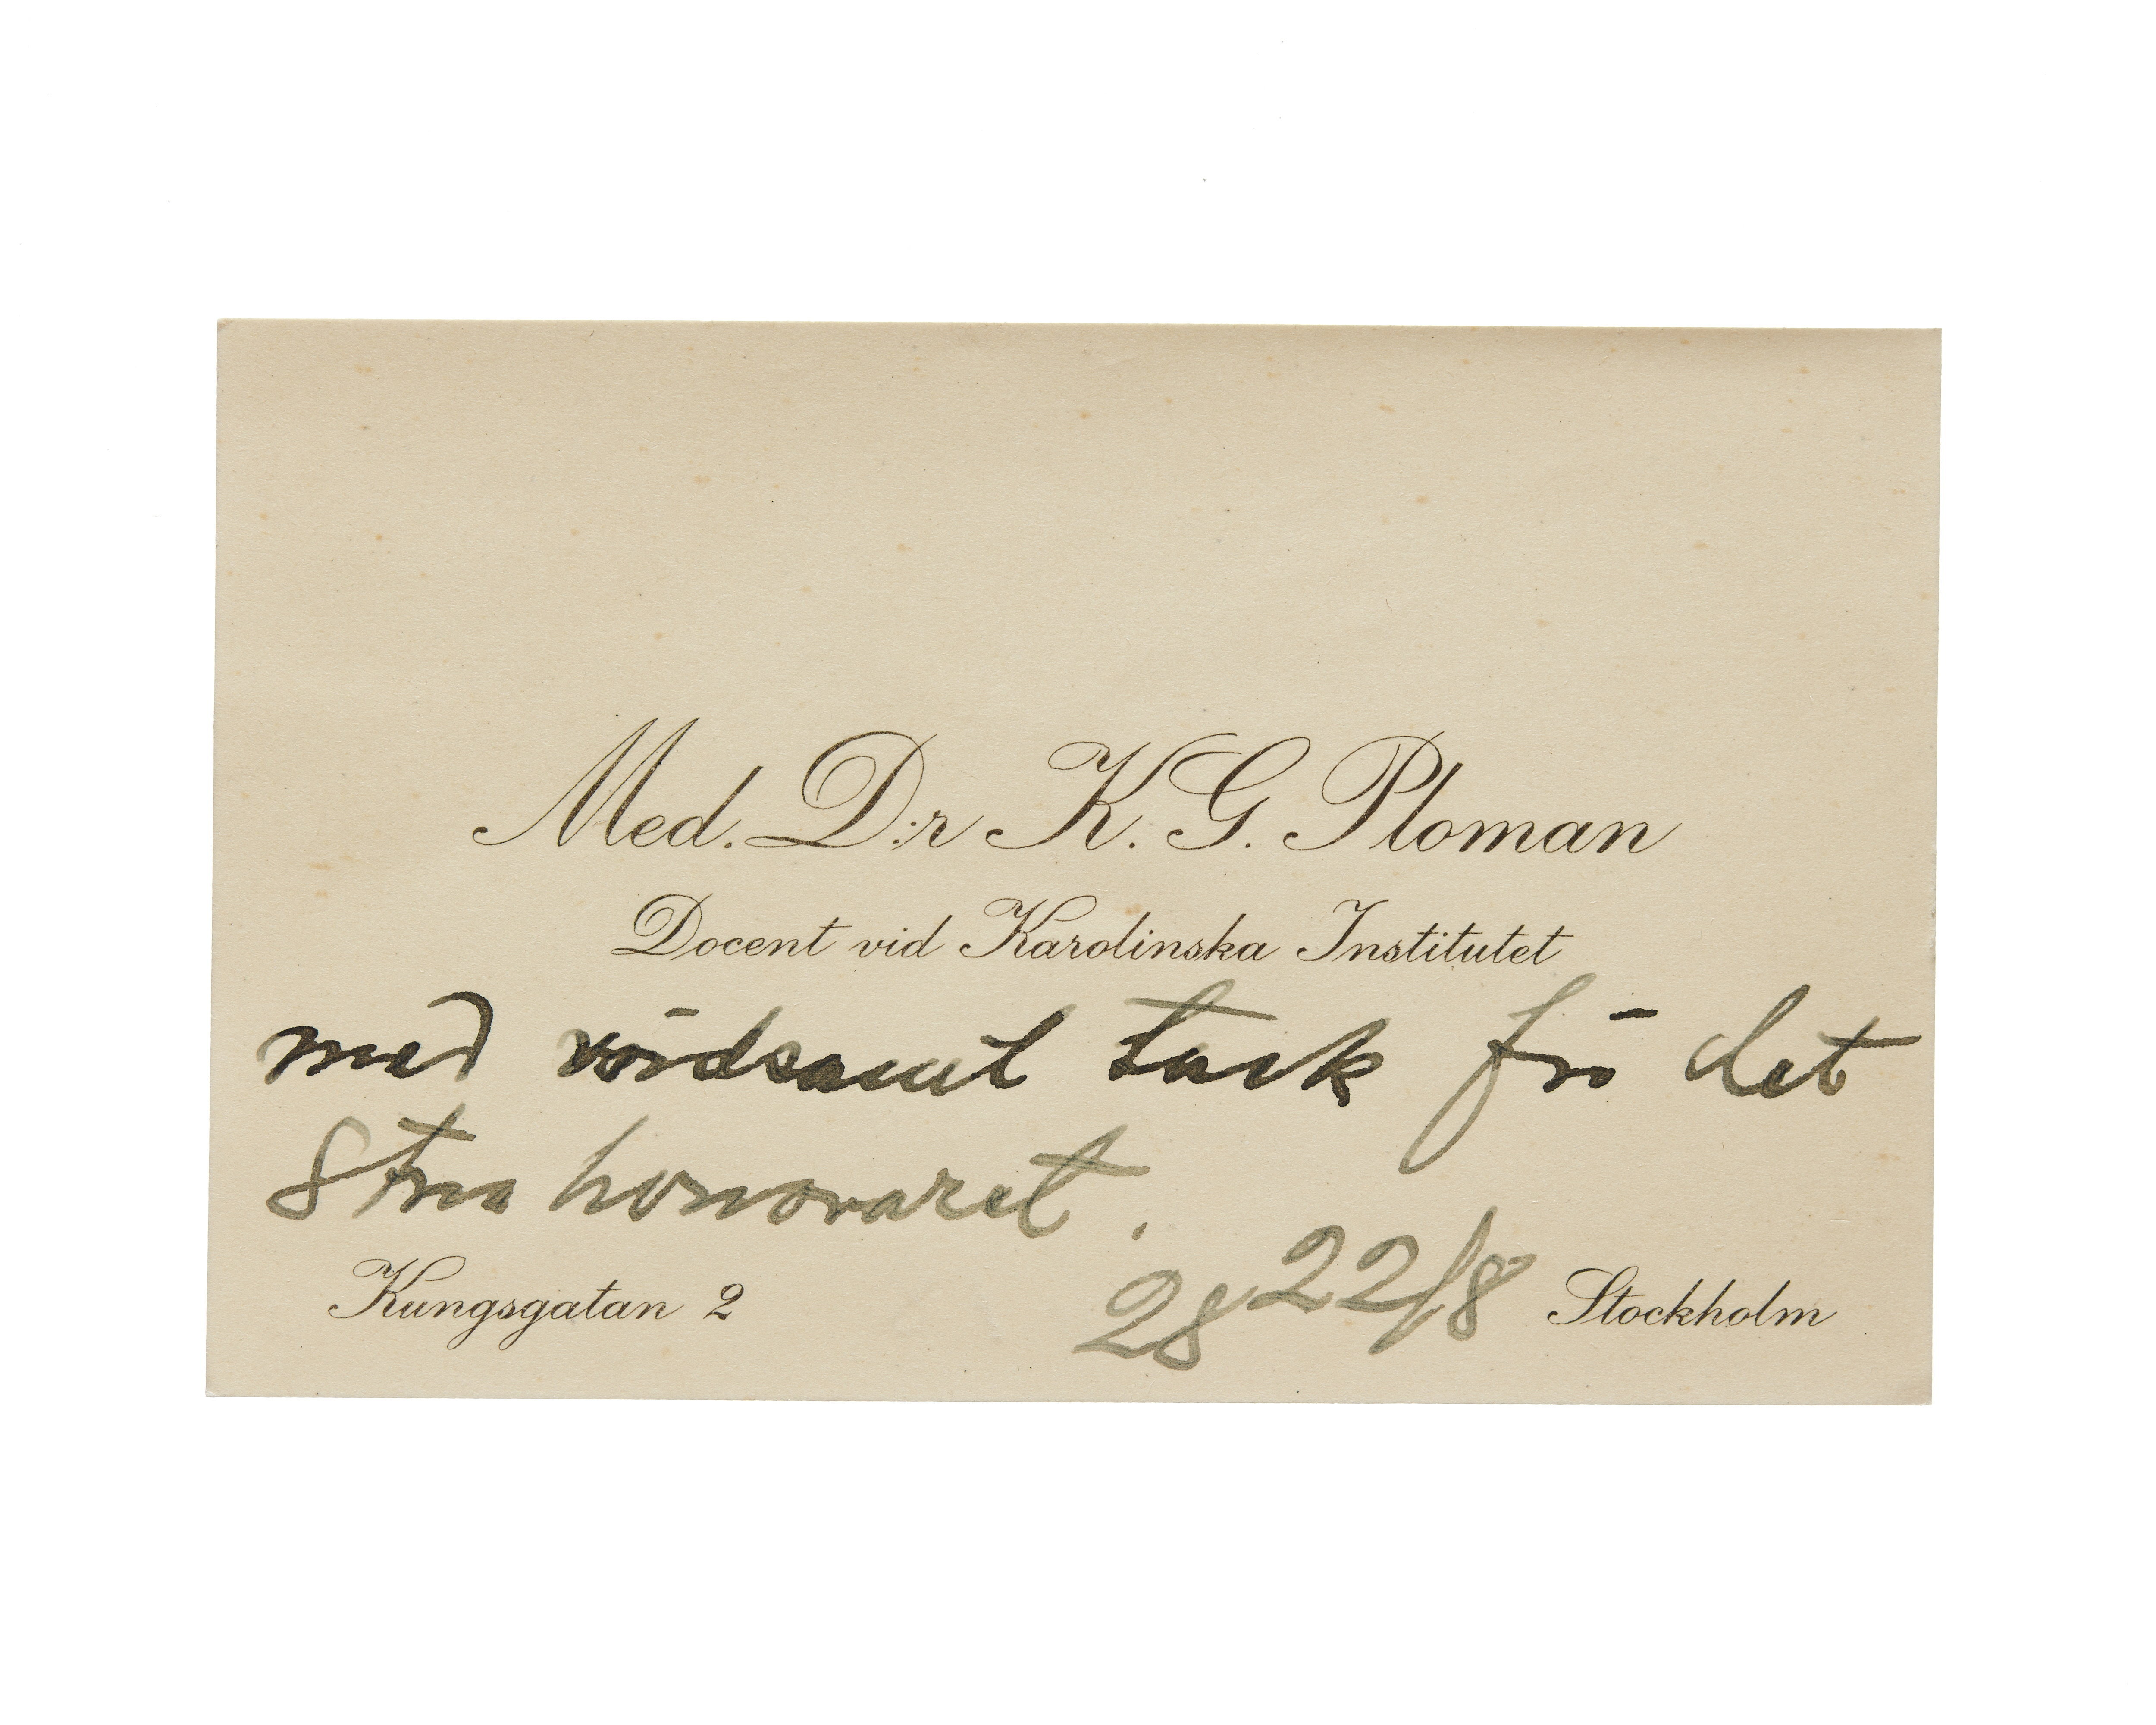 Med. D:r K. G. Ploman
Docent vid Karolinska Institutet
med vördsamt tack för det
honoraret.
28 22/8
Kungsgatan 2 Stockholm